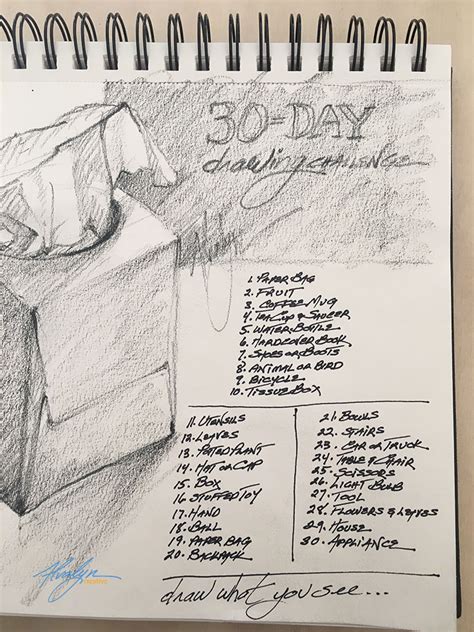 30-DAY
drawing CHALLENGE
1. PAPER BAG
2. FRUIT
3. COFFEE MUG
4. TEA CUP & SAUCER
5. WATER BOTTLE
6. HARDCOVER BOOK
7. SHOES OR BOOTS
8. ANIMAL OR BIRD
9. BICYCLE
10. TISSUE BOX
11. UTENSILS
12. LEAVES
13. POTTED PLANT
14. HAT OR CAP
15. BOX
16. STUFFED TOY
17. HAND
18. BALL
19. PAPER BAG
20. BACKPACK
21. BOWLS
22. STAIRS
23. CAR OR TRUCK
24. TABLE & CHAIR
25. SCISSORS
26. LIGHT BULB
27. TOOL
28. FLOWERS & LEAVES
29. HOUSE
30. APPLIANCE
draw what you see...